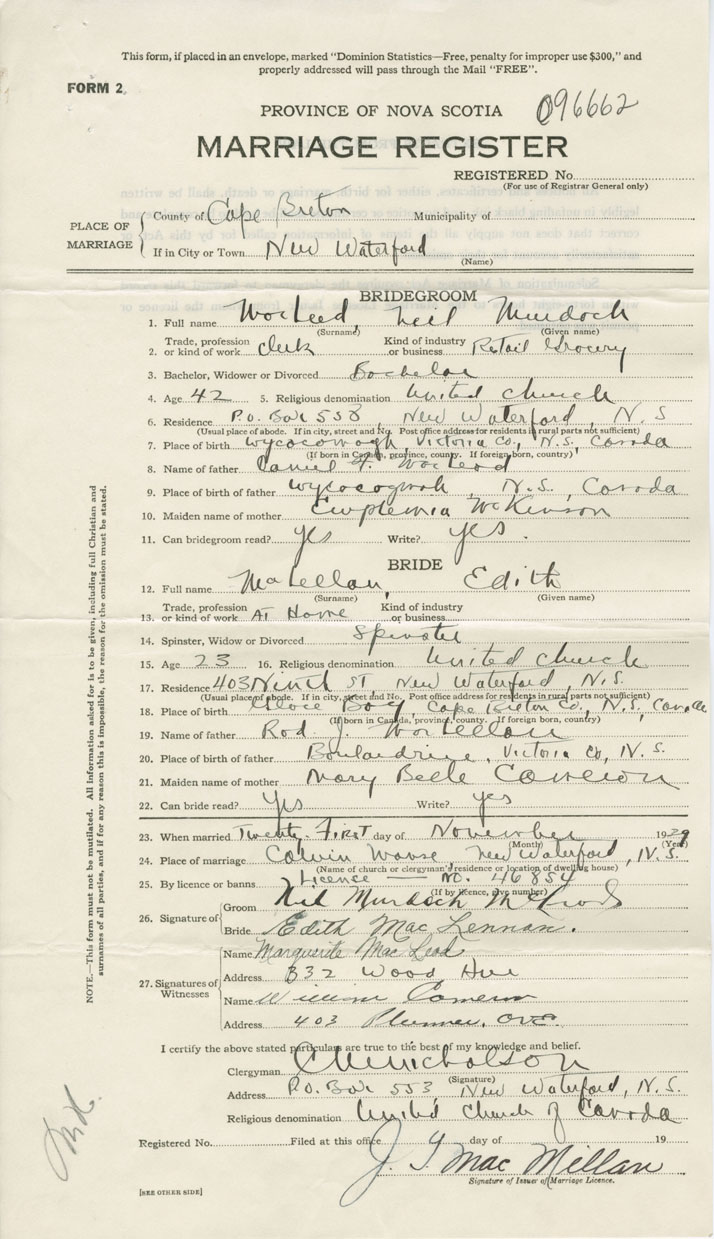 This form, if placed in an envelope, marked "Dominion Statistics—Free, penalty for improper use $300," and
properly addressed will pass through the Mail "FREE".
FORM 2
PROVINCE OF NOVA SCOTIA 096662
MARRIAGE REGISTER
REGISTERED No.
(For use of Registrar General only)
PLACE OF MARRIAGE
County of Cape Breton Municipality of
If in City or Town New Waterford
(Name)
BRIDEGROOM
1. Full name MacLeod, Neil Murdoch
(Surname) (Given name)
2. Trade, profession or kind of work Clerk Kind of industry or business Retail Grocery
3. Bachelor, Widower or Divorced Bachelor
4. Age 42 5. Religious denomination United Church
6. Residence P.O. Box 558, New Waterford, N.S
(Usual place of abode. If in city, street and No. Post office address for residents in rural parts not sufficient)
7. Place of birth Wycocomagh, Victoria Co., N.S., Canada
(If born in Canada, province, county. If foreign born, country)
8. Name of father Daniel F. MacLeod
9. Place of birth of father Wycocogmah, N.S., Canada
10. Maiden name of mother Euphemia McKinnon
11. Can bridegroom read? yes Write? yes.
BRIDE
12. Full name MacLellan, Edith
(Surname) (Given name)
13. Trade, profession or kind of work At Home Kind of industry or business
14. Spinster, Widow or Divorced Spinster
15. Age 23 16. Religious denomination United Church
17. Residence 403 Ninth St New Waterford, N.S.
(Usual place of abode. If in city, street and No. Post office address for residents in rural parts not sufficient)
18. Place of birth Glace Bay, Cape Breton Co., N.S, Canada
(If born in Canada, province, county. If foreign born, country)
19. Name of father Rod. J. MacLellan
20. Place of birth of father Boulardrine, Victoria Co, N.S.
21. Maiden name of mother Mary Belle Cameron
22. Can bride read? Yes Write? yes
23. When married Twenty-First day of November 1929
(Month) (Year)
24. Place of marriage Calvin Manse, New Waterford, N.S.
(Name of church or clergyman's residence or location of dwelling house)
25. By licence or banns Licence — No. 46854
(If by licence, give number)
26. Signature of
Groom Neil Murdoch McLeod
Bride Edith Mac Lennan.
27. Signatures of Witnesses
Name Marguerite Mac Lead
Address 832 Wood Ave
Name William Cameron
Address 403 Plummer, Ave.
I certify the above stated particulars are true to the best of my knowledge and belief.
Clergyman Nicholson
(Signature)
Address P.O. Box 553 New Waterford, N.S.
Religious denomination United Church of Canada
Registered No. Filed at this office day of 19
J. Mac Millan
Signature of Issuer of Marriage Licence.
[SEE OTHER SIDE]
NOTE.—This form must not be mutilated. All information asked for is to be given, including full Christian and
surnames of all parties, and if for any reason this is impossible, the reason for the omission must be stated.